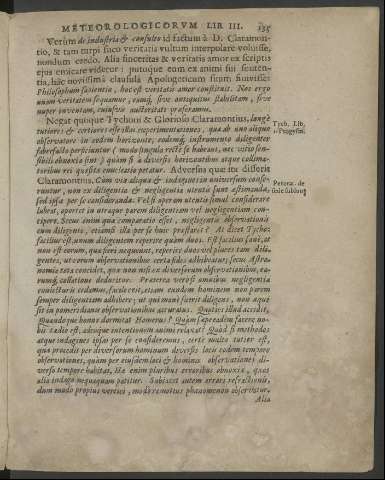 METEOROLOGICORVM LIB III. 135
Verùm de industria & consulto id factum à D. Claramon-
tio, & tam turpi fuco veritatis vultum interpolare voluisse,
nondum credo. Alia sinceritas & veritatis amor ex scriptis
ejus emicare videtur: putoque eum ex animi sui senten-
tia, hâc novissimâ clausulâ Apologeticum suum finivisse:
Philosophum sapientiæ, hoc est veritatis amor constituit. Nos ergo
unam veritatem sequamur, eamq́, sive antiquitus stabilitam, sive
nuper inventam, cujusvis auctoritati præferamus.
Negat quidque Tychoni & Glorioso Claramontius, longè
tutiores & certiores esse illas experimentationes, quæ ab uno aliquo
observatore in eodem horizonte, eodemq́, instrumento diligenter
fabrefacto perficiuntur (modo singula rectè se habeant, nec vitio sen-
sibili obnoxia sint) quàm si à diversis horizontibus atque collima-
toribus rei quæsitæ enucleatio petatur.
Tych. Lib.
1. Progysm.
Adversus quæ ita disserit
Claramontius. Cùm via aliqua & indagines in universum conse-
runtur, non ex diligentia & negligentia utentis sunt æstimandæ,
sed ipsa per se consideranda. Vel si operam utentis simul considerare
Petera. de
labeat, oportet in utraque parem diligentiam vel negligentiam con-
cipere. Secus enim quæ comparatio esset, negligentis observationis
cum diligente, etiamsi illa per se huic præstaret? At dicet Tycho:
facilius est, unum diligentem reperire quàm duos. Est facilius sanè, at
non est eorum, qua fieri nequeant, reperire duos vel plures tam dili-
gentes, ut eorum observationibus certa fides adhibeatur; secus Astro-
nomia tota concidet, quæ non nisi ex diversorum observationibus, ea-
rumq́, collatione deducitur. Præterea verò si omnibus negligentia
conjecturis eadem, facile erit, etiam eundem hominem non parem
semper diligentiam adhibere; ut qui mane fuerit diligens, non æquè
sit in pomeridianis observationibus accuratus. Quoties illud accidit,
Quandoque bonus dormitat Homerus? Quàm sæpe eadem facere no-
bis tædio est, adeoque intentionem animi relaxat? Quòd si methodos
atque indagines ipsas per se consideremus, certè multo tutior est,
quæ procedit per diversorum hominum diversis locis eodem tempore
observationes, quàm per ejusdem loci & hominis observationes di-
verso tempore habitas. Hæ enim pluribus erroribus obnoxiæ, quos
alia indago nequaquam patitur. Subjacet autem errori refractionis,
dum modo propius vertici, modò remotius phænomenon observatur.
Alia